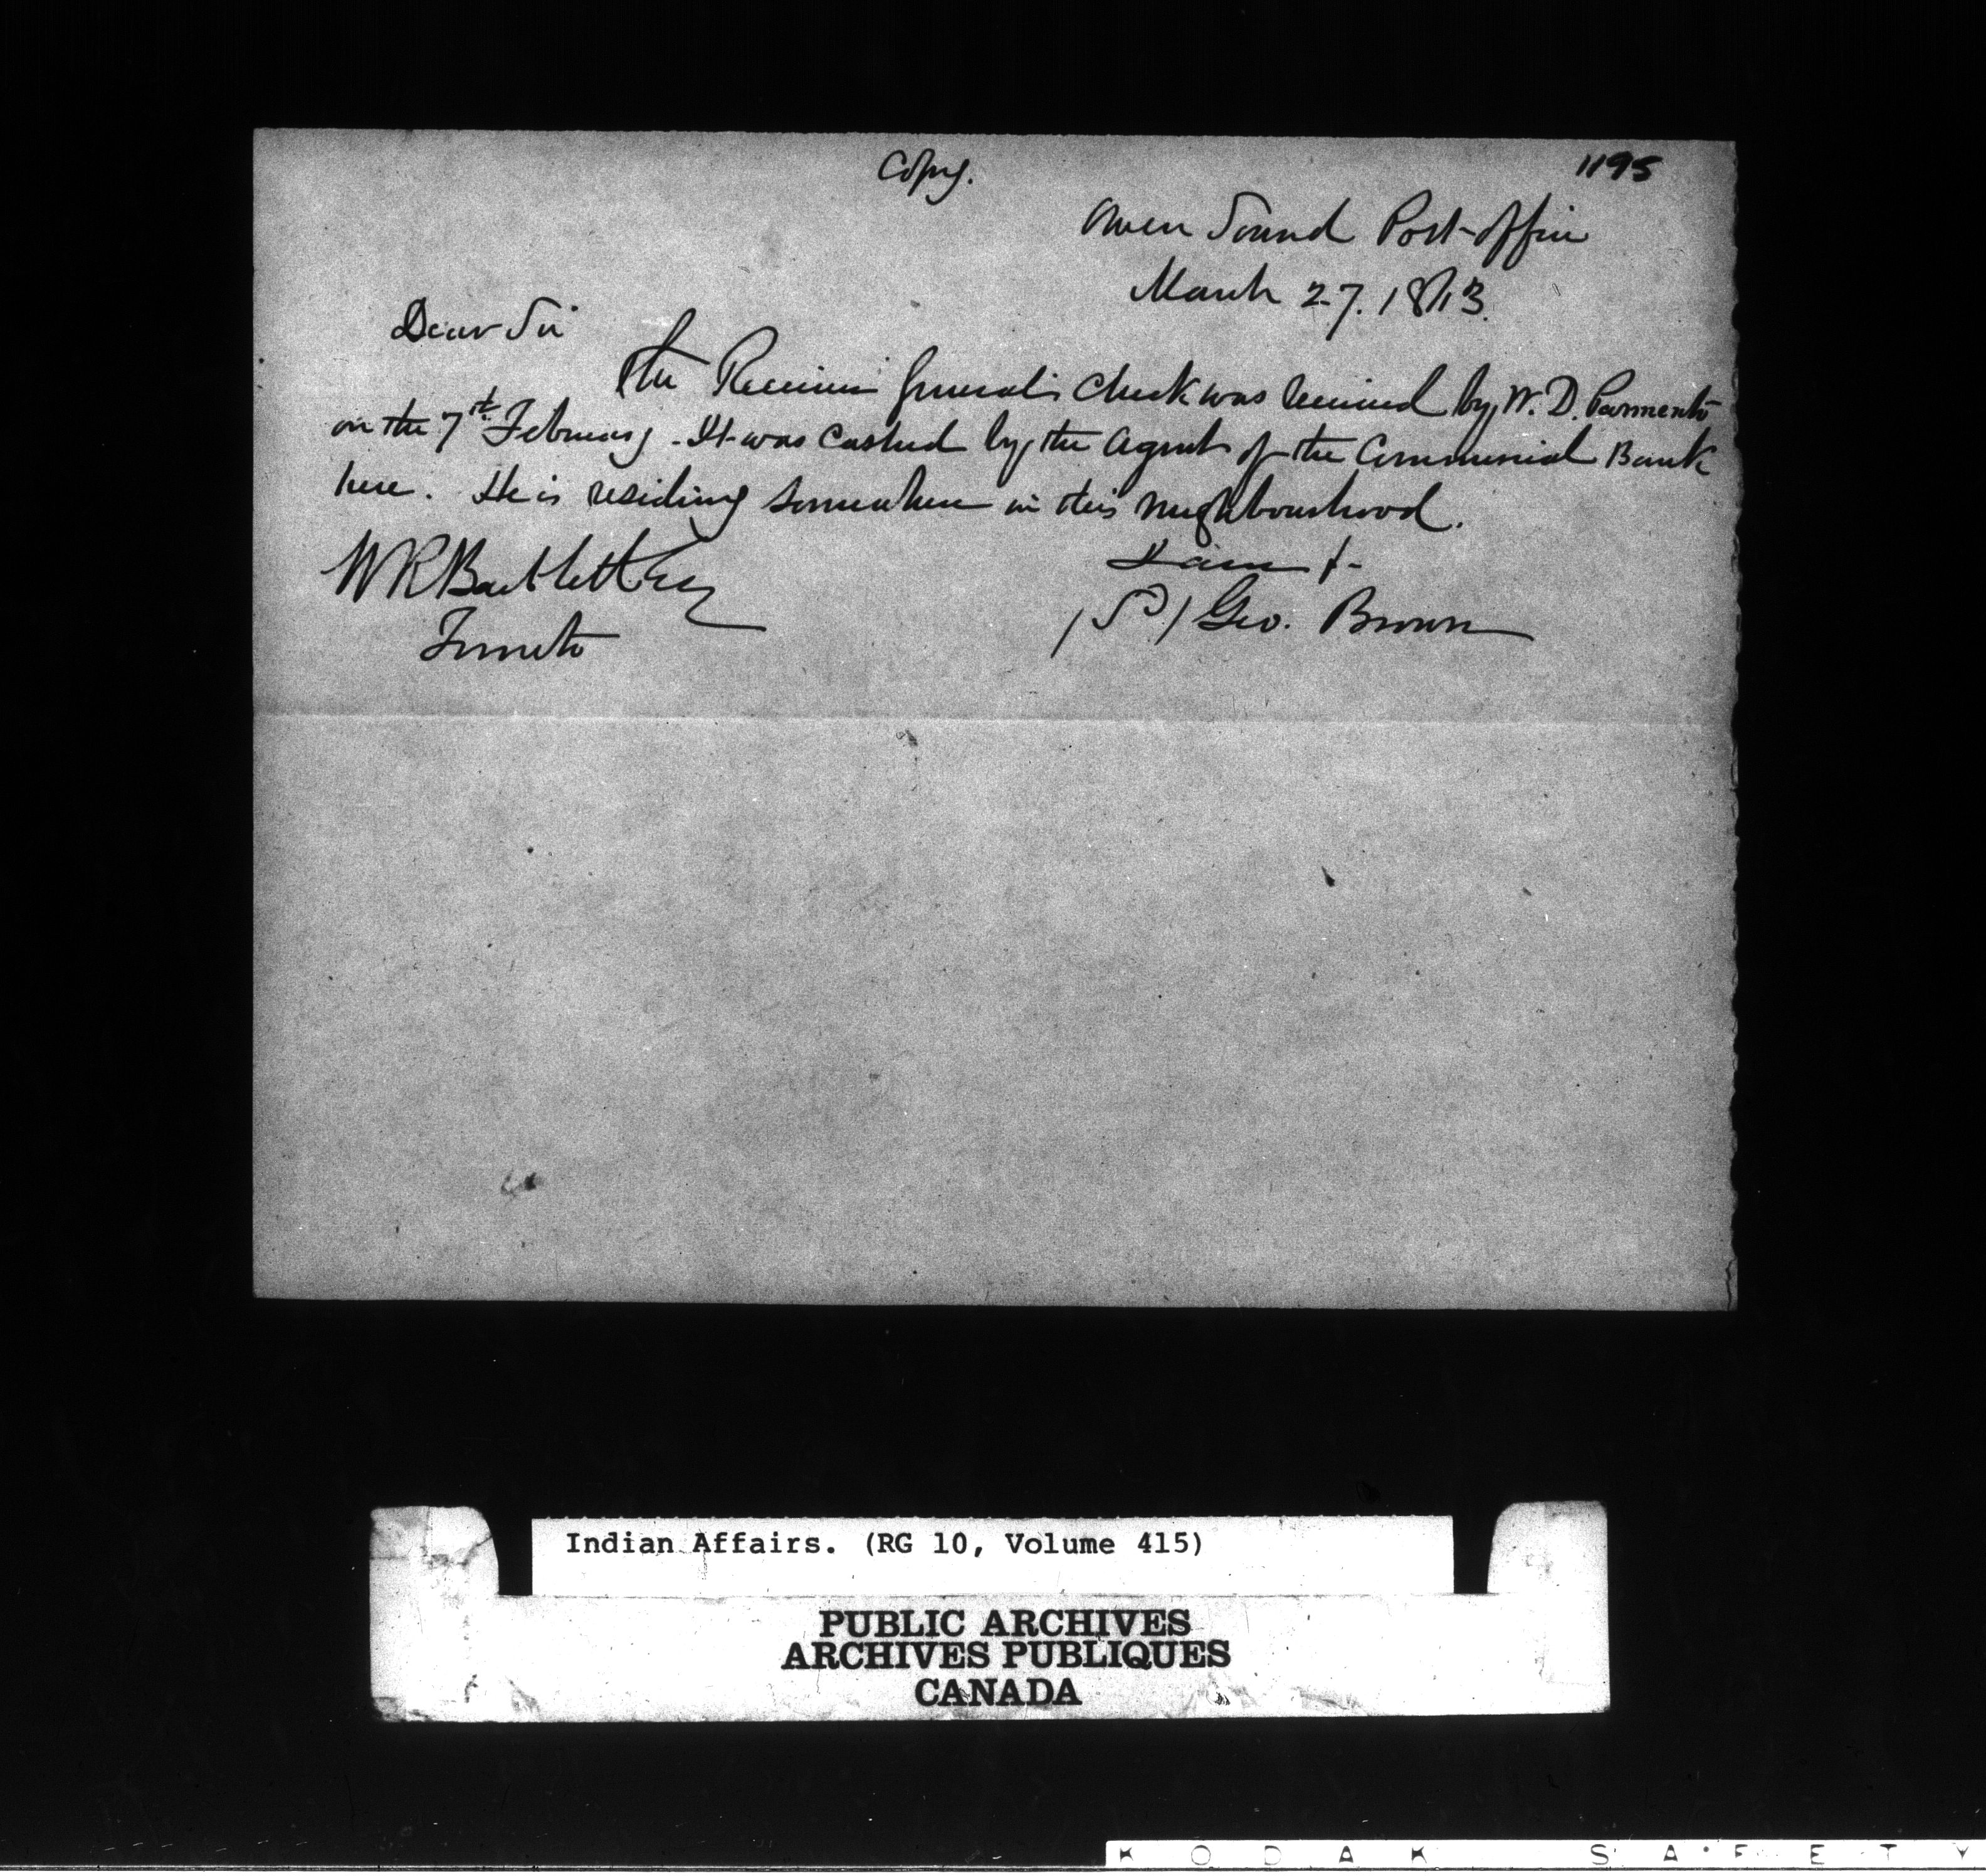 Copy.
1195
Owen Sound Post-office
March 27. 1863.
Dear Sir
The Receiver General's Check was received by W. D. Parmenter
on the 7th February. It was cashed by the Agent of the Commercial Bank
here. He is residing somewhere in this neighbourhood.
I am &
(S) Geo. Brown
W R Bartlett Esq
Toronto
Indian Affairs. (RG 10, Volume 415)
PUBLIC ARCHIVES
ARCHIVES PUBLIQUES
CANADA
KODAK SAFETY